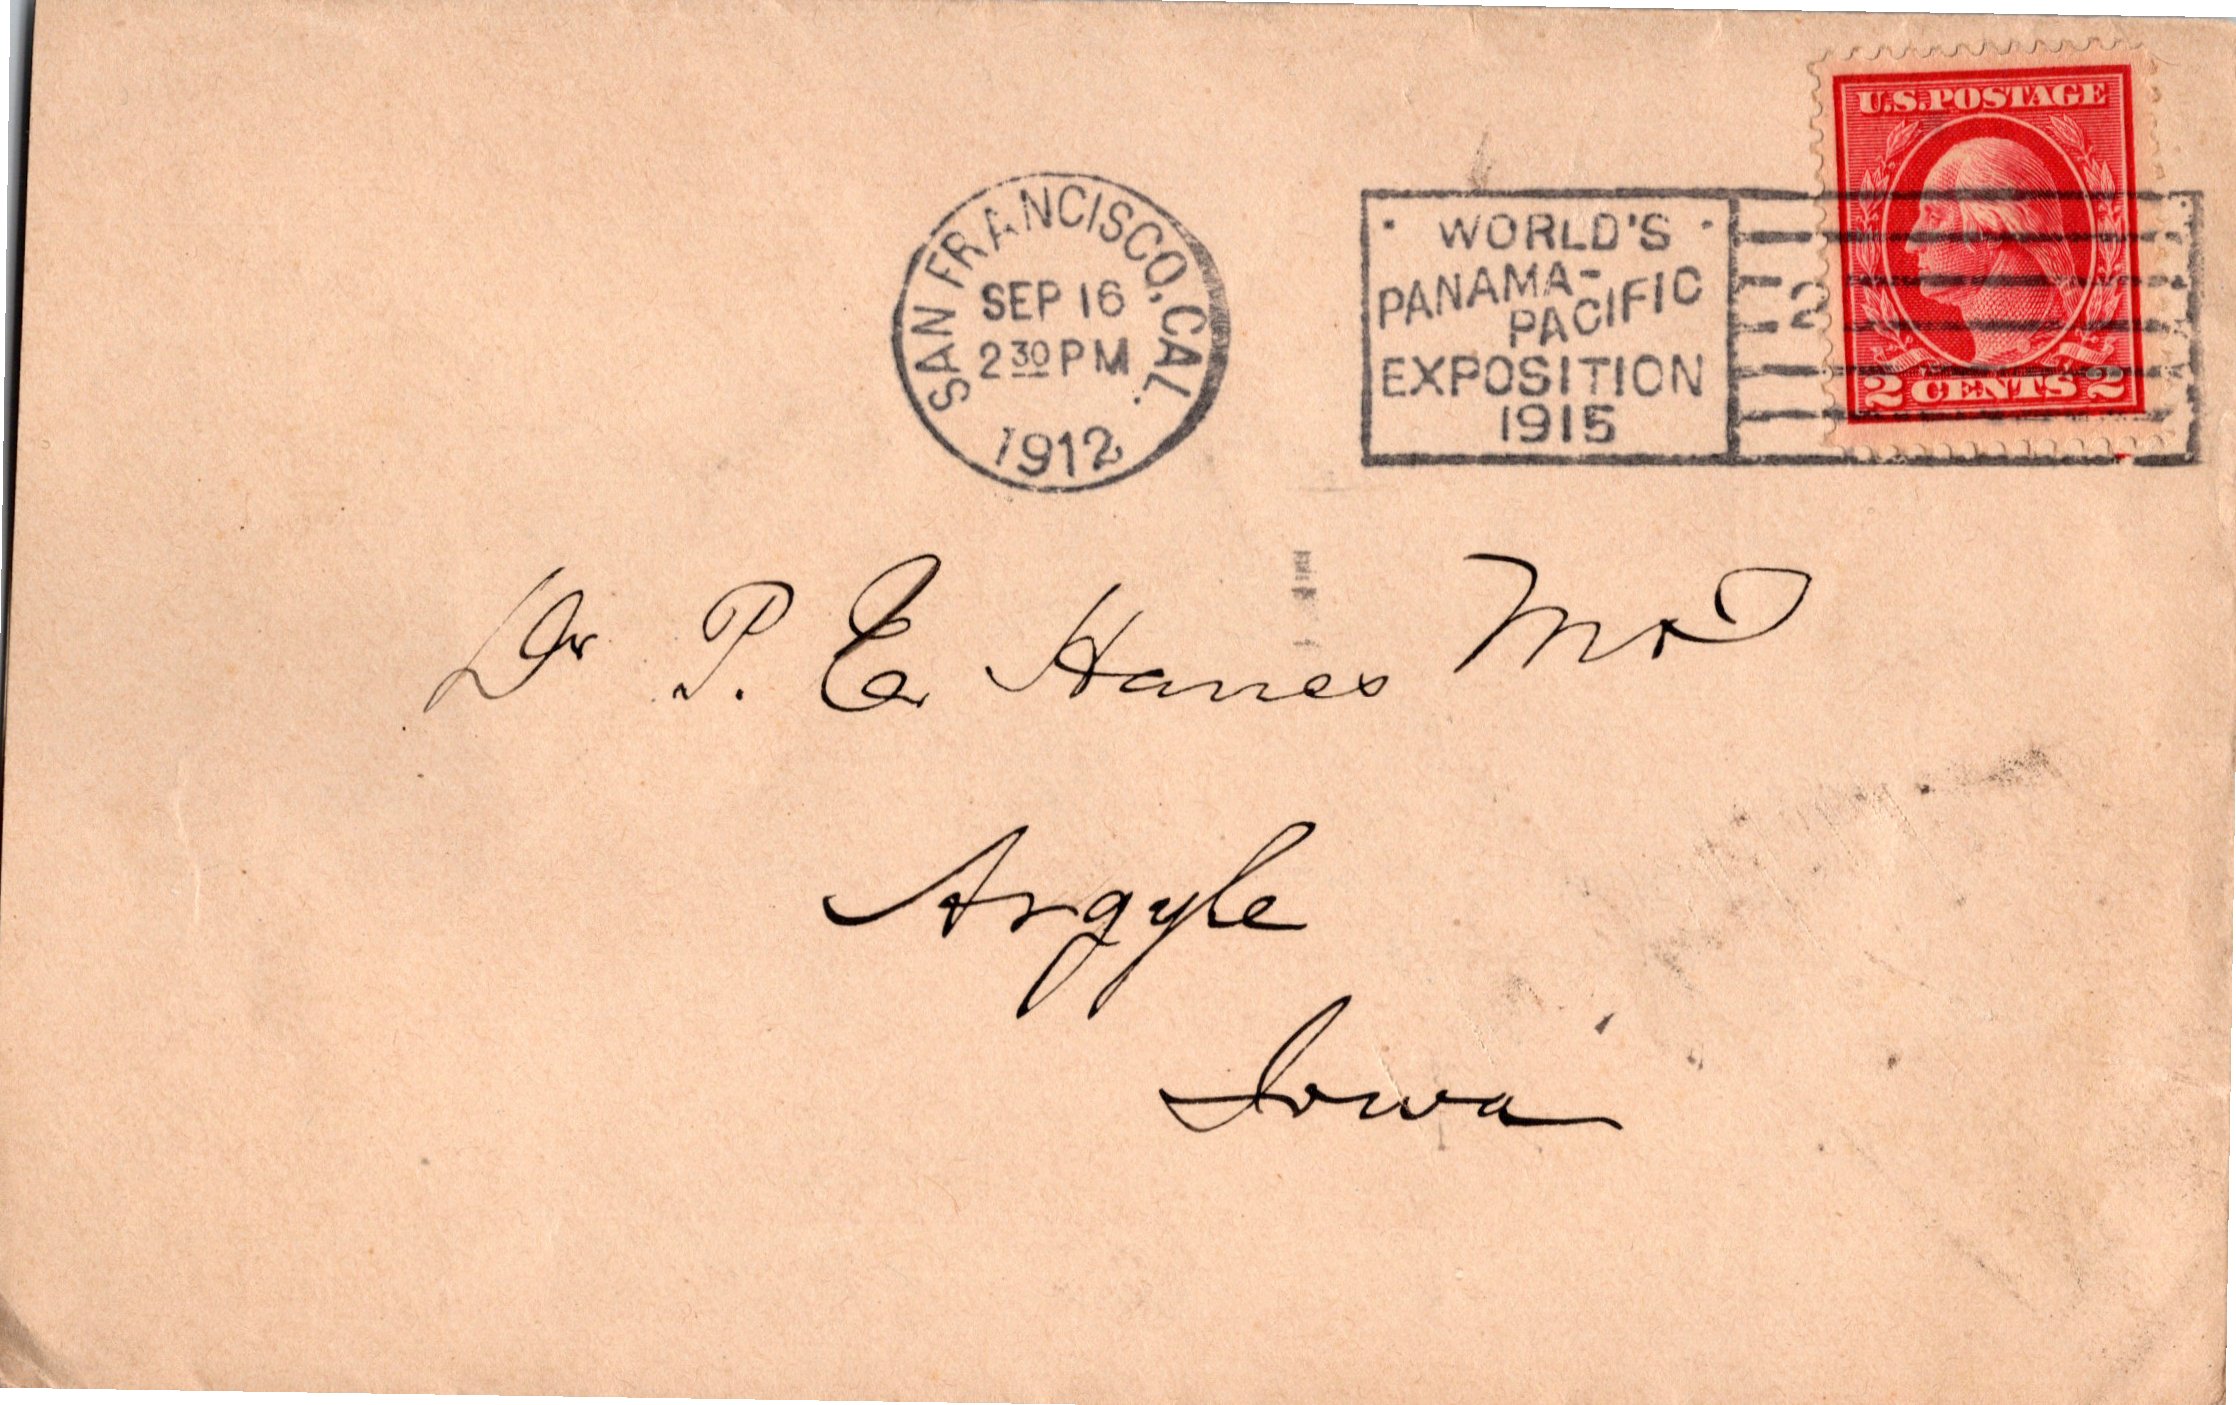 SAN FRANCISCO, CAL.
SEP 16
2 30 PM
1912
WORLD'S
PANAMA-
PACIFIC
EXPOSITION
1915
2
U.S. POSTAGE
2 CENTS 2
Dr P. E. Hanes MD
Argyle
Iowa